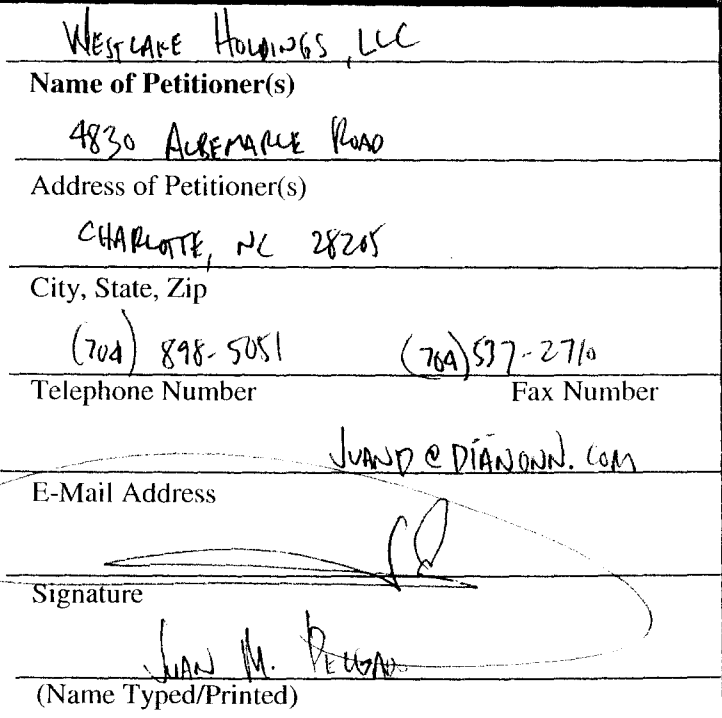 WESTLAKE HOLDINGS, LLC
Name of Petitioner(s)
4830 ALBEMARLE ROAD
Address of Petitioner(s)
CHARLOTTE, NC 28205
City, State, Zip
(704) 898-5051 (704) 537-2710
Telephone Number Fax Number
JUAND@DIANONN.COM
E-Mail Address
Signature
JUAN M. DELGADO
(Name Typed/Printed)